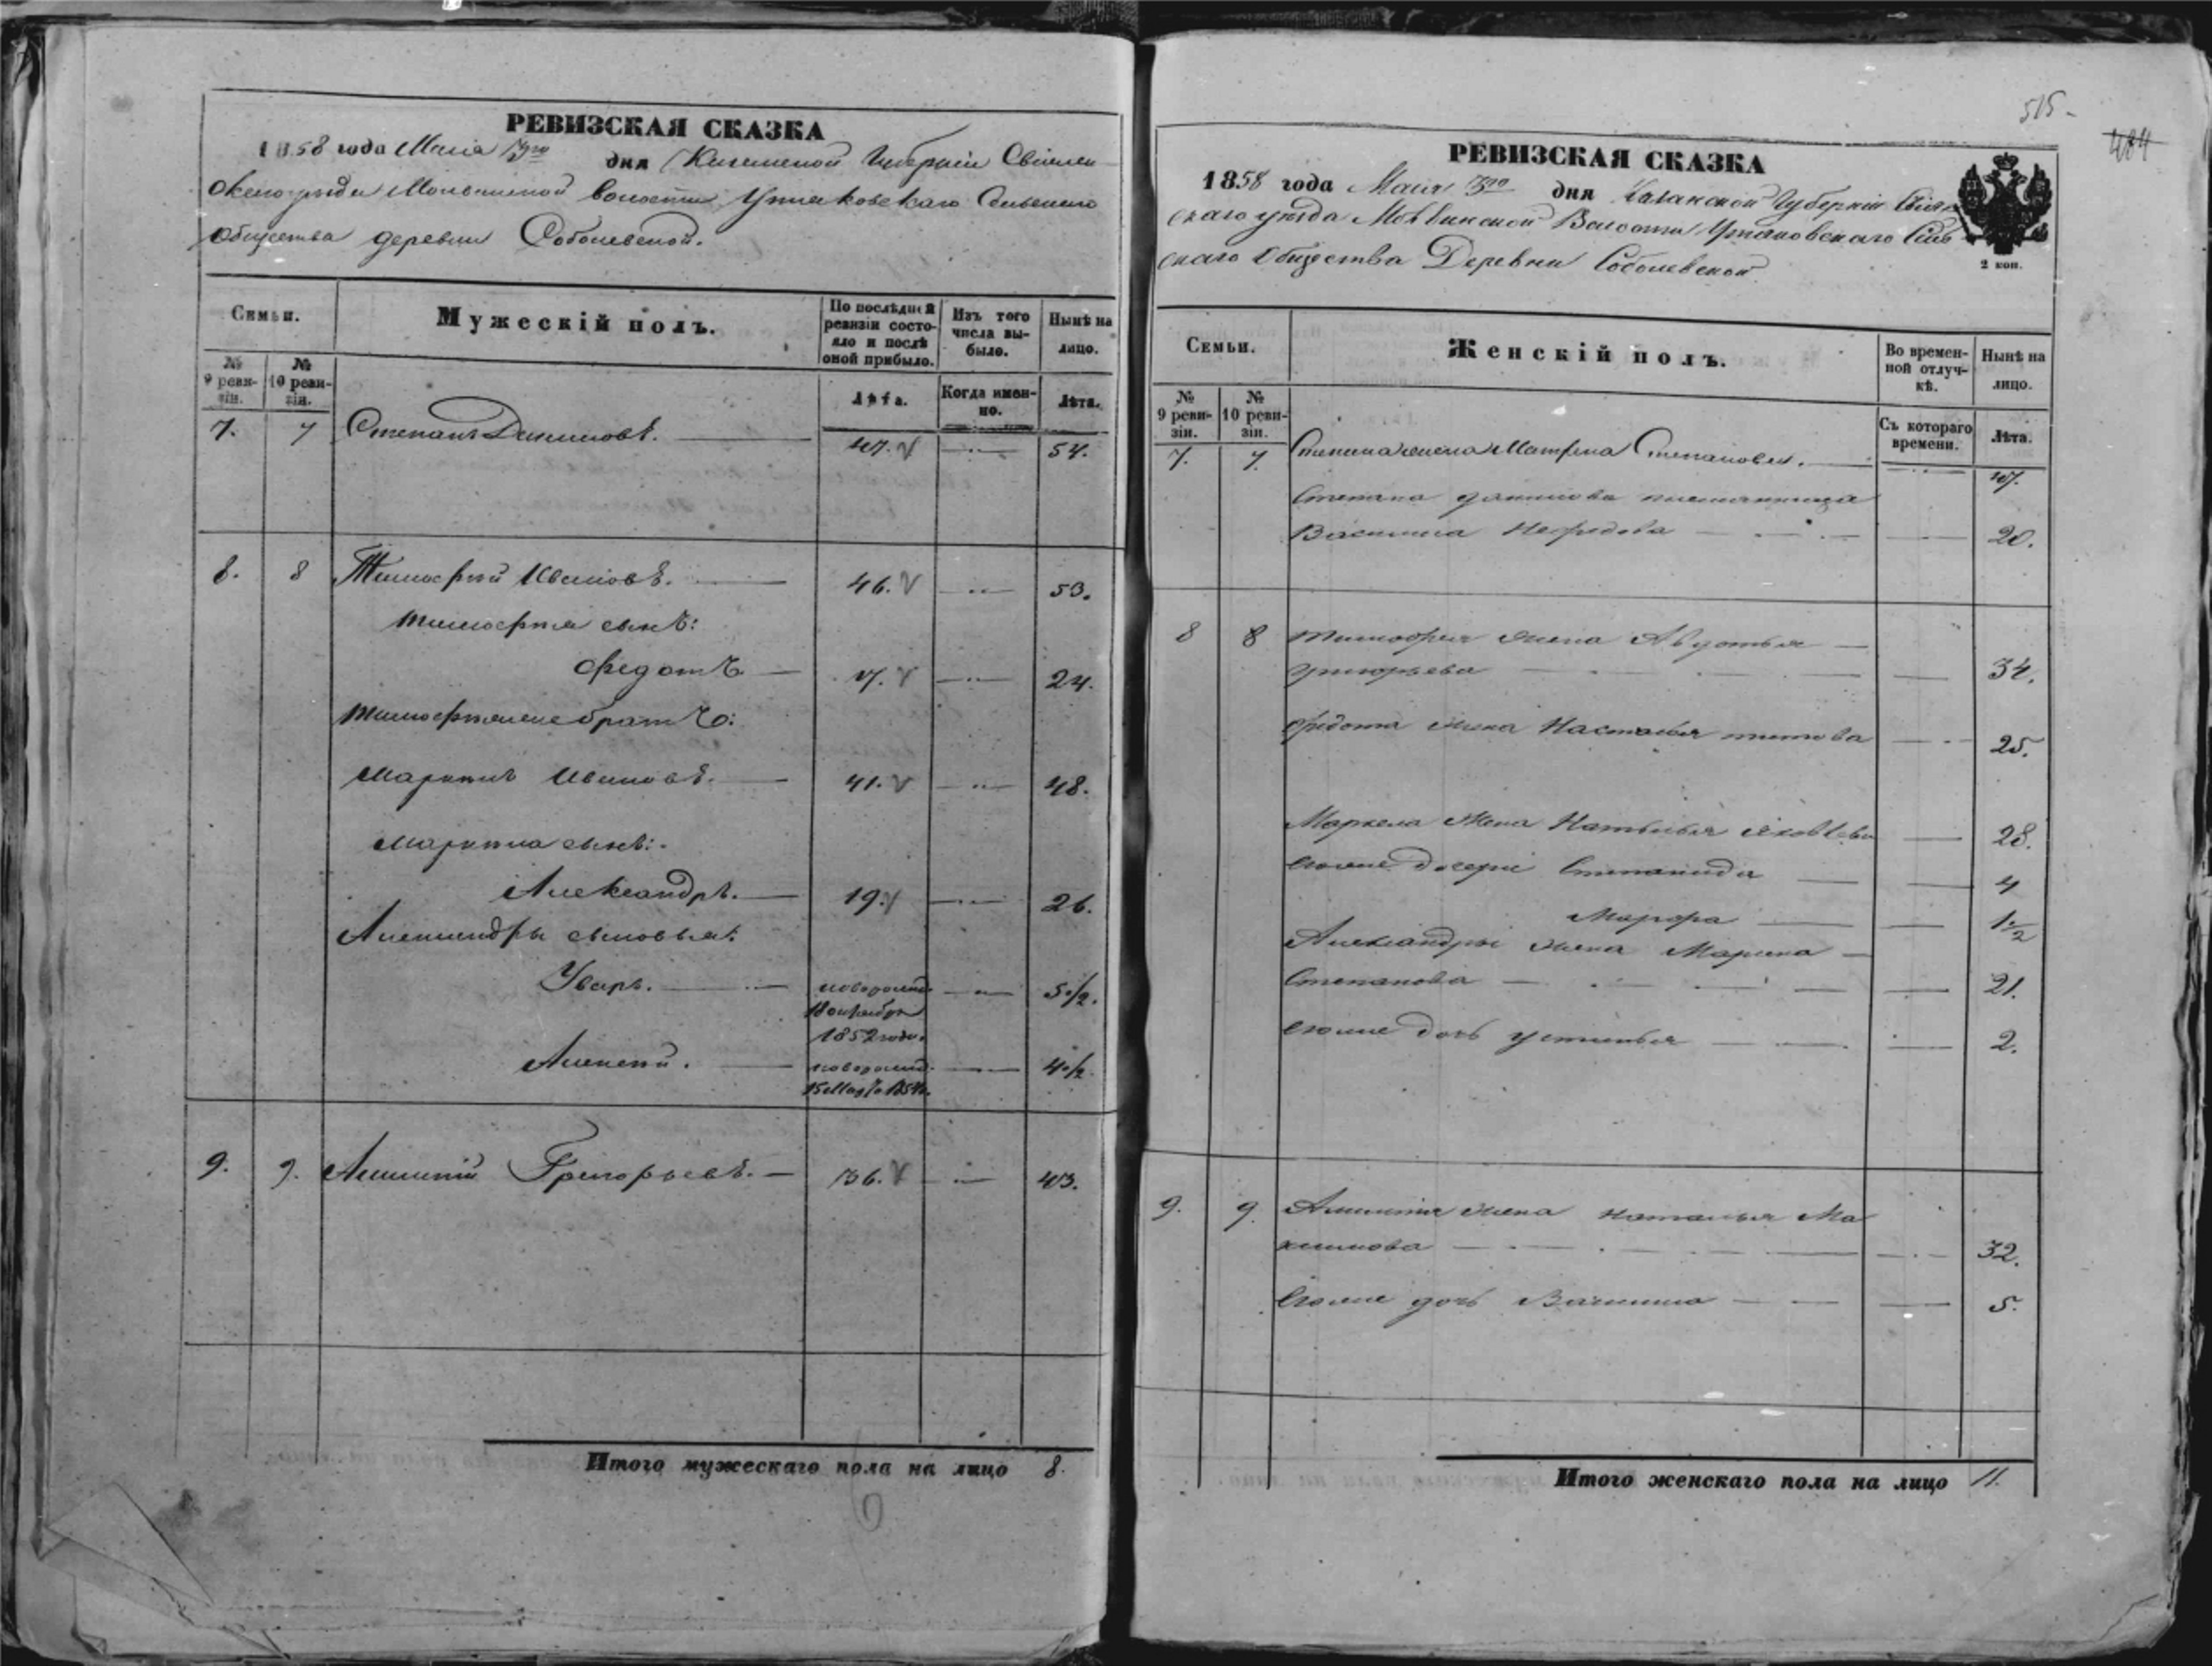 РЕВИЗСКАЯ СКАЗКА
1858 года Маія 3го дня Казанской Губерніи Свіяж
скаго уѣзда Мольвинской волости Утяковскаго Сельскаго
общества деревни Соболевской.
Семьи.
Мужескій полъ.
По послѣдней ревизіи состояло и послѣ оной прибыло.
Изъ того числа выбыло.
Нынѣ на лицо.
№ 9 ревизіи.
№ 10 ревизіи.
Лѣта.
Когда именно.
Лѣта.
7. 7 Степанъ Даниловъ. 47. 54.
8. 8 Тимофей Ивановъ. 46. 53.
Тимофея сынъ:
Федотъ 17. 24.
Тимофея братъ:
Маркелъ Ивановъ. 41. 48.
Маркела сынъ:
Александръ. 19. 26.
Александры сыновья:
Уваръ. новорожд. 5 1/2.
1852 года.
Алексей. новорожд. 4 1/2.
9. 9. Григорьевъ. 36. 43.
Итого мужескаго пола на лицо 8.
6
515
484
РЕВИЗСКАЯ СКАЗКА
1858 года Маия 3го дня Казанской Губерніи Свіяж
скаго уѣзда Молвинской Волости Утяковскаго Сель
скаго Общества Деревни Соболевской
2 коп.
Семьи.
Женскій полъ.
Во временной отлучкѣ.
Нынѣ на лицо.
№ 9 ревизіи.
№ 10 ревизіи.
Съ котораго времени.
Лѣта.
7. 7. Степана жена Матрена Степанова. 47.
Степана Данилова племянница
Василиса Нефедова 20.
8 8 Тимофея жена Авдотья
Григорьева 34.
Федота жена Настасья Титова 25.
Маркела жена Наталья Яковлева 28.
его же дочери Степанида 4
Марфа 1 1/2
Александры жена Марина
Степанова 21.
его же дочь Устинья 2.
9. 9. жена Наталья Ма
ксимова 32.
его же дочь Василиса 5.
Итого женскаго пола на лицо 11.